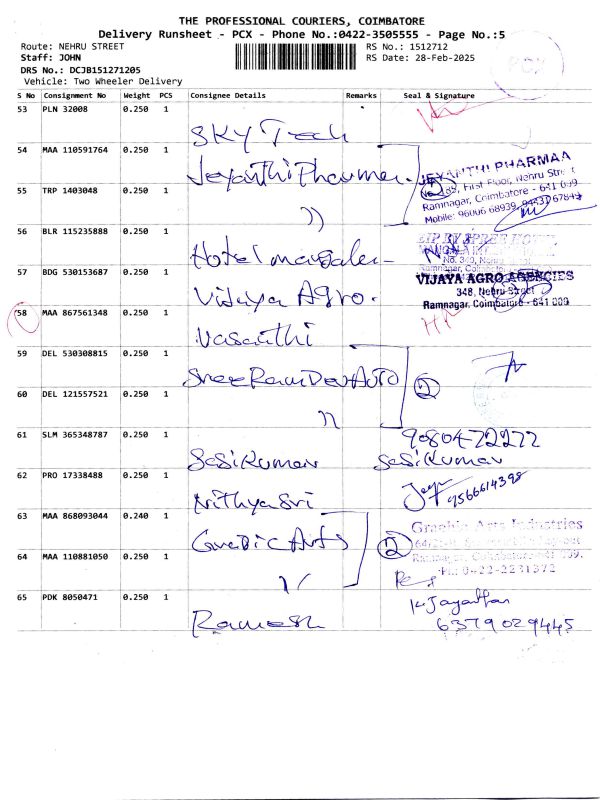 THE PROFESSIONAL COURIERS, COIMBATORE
Delivery Runsheet - PCX - Phone No.:0422-3505555 - Page No.:5
Route: NEHRU STREET
RS No.: 1512712
Staff: JOHN
RS Date: 28-Feb-2025
DRS No.: DCJB151271205
Vehicle: Two Wheeler Delivery
PCX
S No Consignment No Weight PCS Consignee Details Remarks Seal & Signature
53 PLN 32008 0.250 1
SKY Tech
54 MAA 110591764 0.250 1
Jeyanthi Pharmaa
JEYANTHI PHARMAA
First Floor, Nehru Street
55 TRP 1403048 0.250 1
Ramnagar, Coimbatore - 641 009
Mobile: 96006 68939,
))
56 BLR 115235888 0.250 1
Hotel
No. 340, Nehru
57 BDG 530153687 0.250 1
VIJAYA AGRO AGENCIES
348, Nehru Street
Vijaya Agro.
Ramnagar, Coimbatore - 641 009
58 MAA 867561348 0.250 1
Vasanthi
59 DEL 530308815 0.250 1
Sree Ram Dev Auto
2
60 DEL 121557521 0.250 1
))
61 SLM 365348787 0.250 1
9080472272
Sasikumar Sasikumar
62 PRO 17338488 0.250 1
9566614398
Nithya Sri
63 MAA 868093044 0.240 1
Graphic Arts Industries
Grapic Arts
2
64 MAA 110881050 0.250 1
Ramnagar, Coimbatore-641 009.
Ph: 0422-2231372
65 PDK 8050471 0.250 1
Ramesh
6379029445